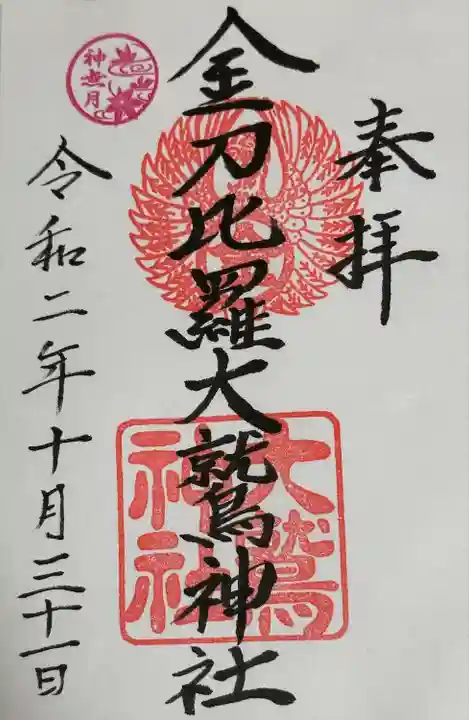 奉拝
金刀比羅大鷲神社
大鷲
神社
神無月
令和二年十月三十一日